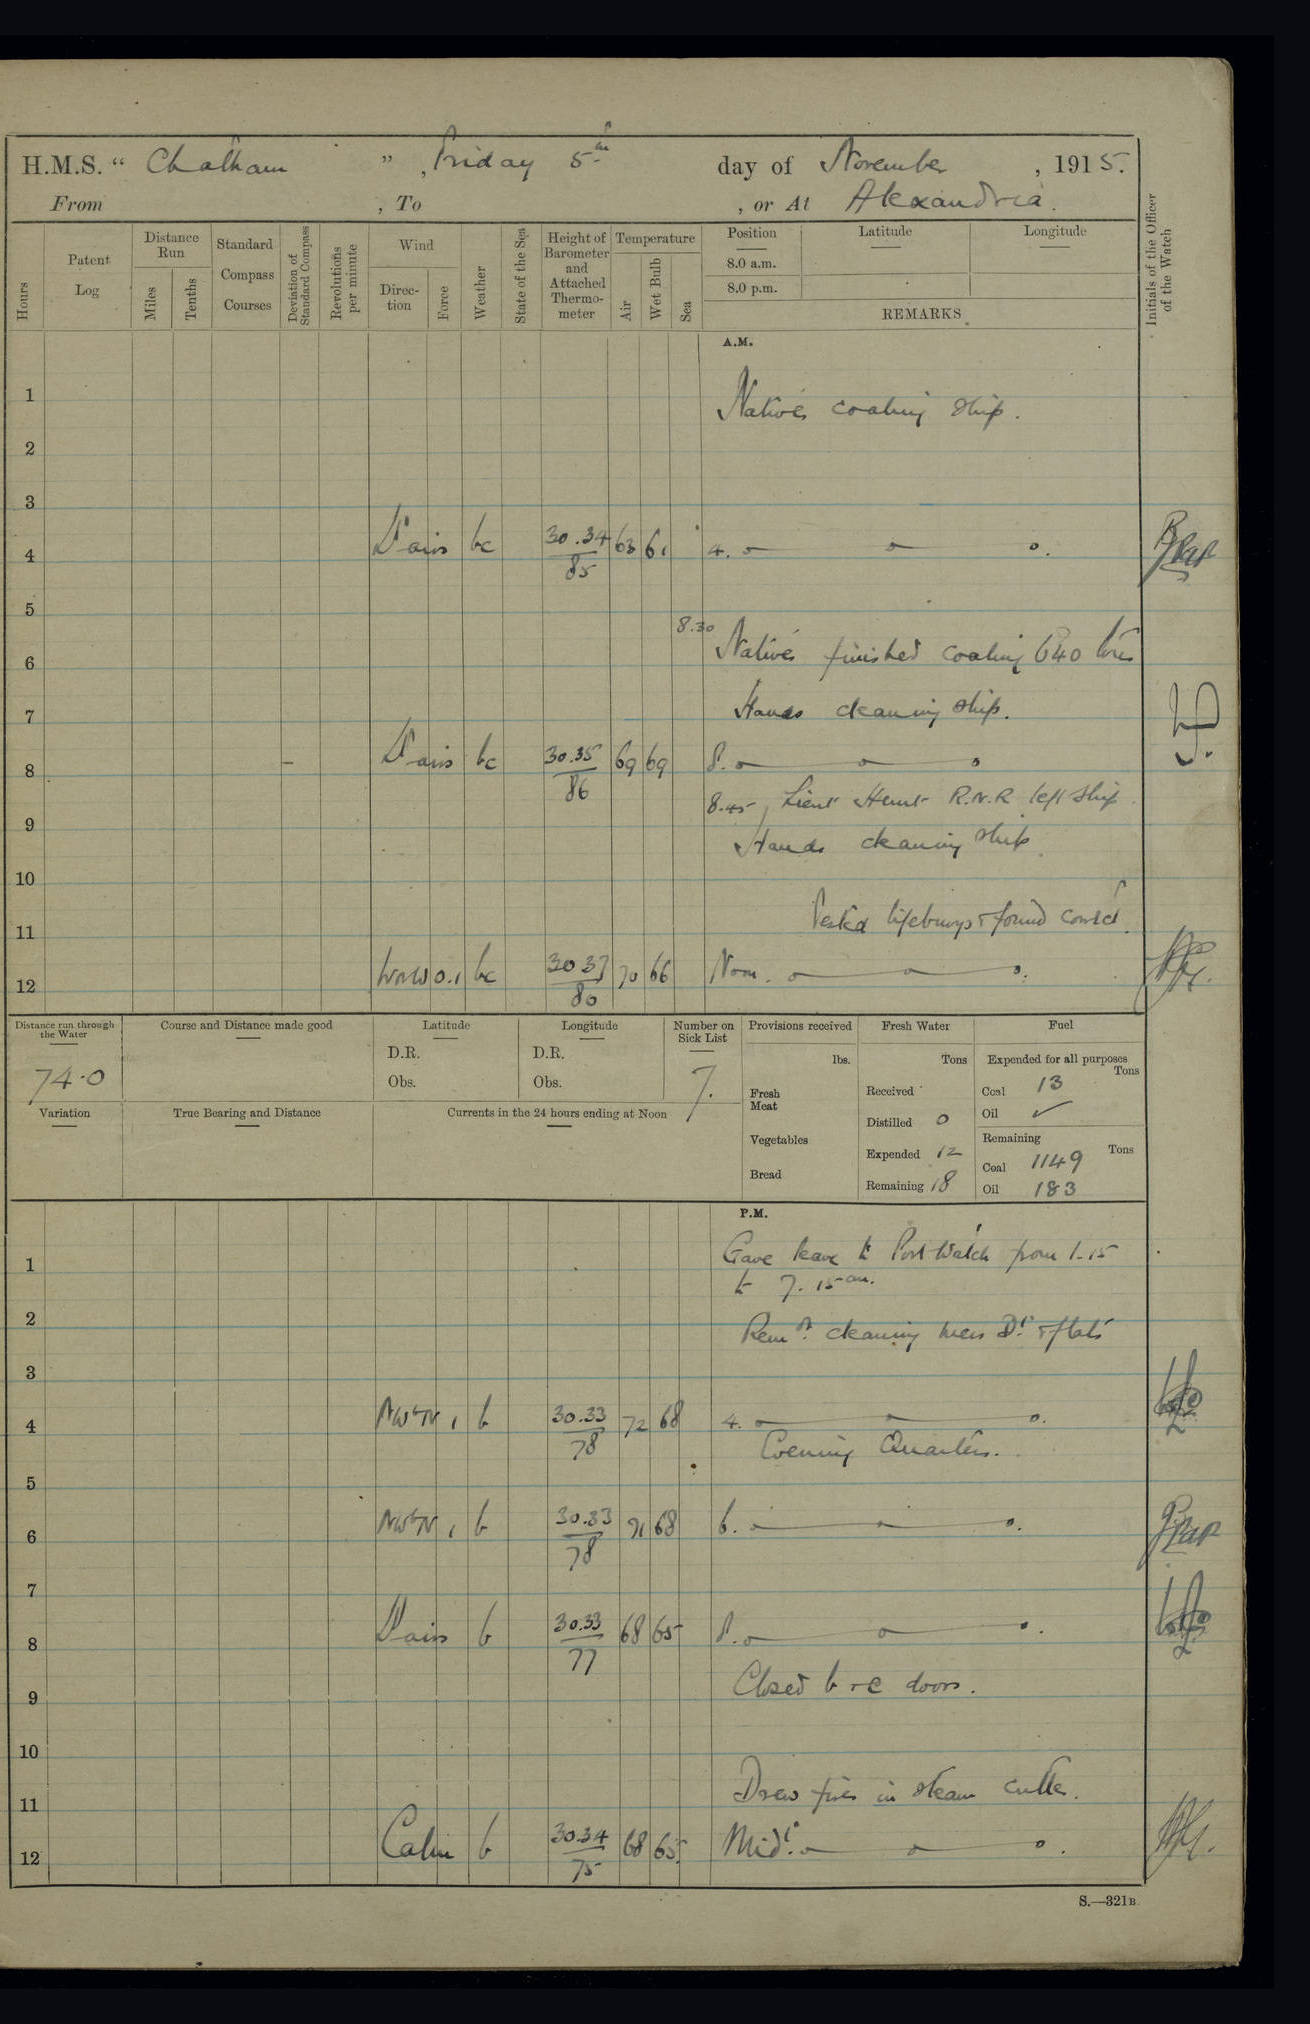 H.M.S. “ Chatham ”, Friday 5th day of November, 1915.
From , To , or At Alexandria.
Hours
Patent Log
Distance Run
Miles
Tenths
Standard Compass Courses
Deviation of Standard Compass
Revolutions per minute
Wind
Direction
Force
Weather
State of the Sea
Height of Barometer and Attached Thermometer
Temperature
Air
Wet Bulb
Sea
Position
8.0 a.m.
8.0 p.m.
Latitude
Longitude
REMARKS
Initials of the Officer of the Watch
A.M.
1 Natives coaling ship.
2
3
4 Lt airs bc 30.34 85 63 61 4.
5
8.30 Natives finished coaling 640 tons
6
7 Hands cleaning ship.
8 Lt airs bc 30.35 86 69 69 8.
8.45 Lieut Hunt R.N.R left ship.
9 Hands cleaning ship.
10
11 Tested lifebuoys & found correct.
12 WNW 0.1 bc 30 37 80 70 66 Noon.
Distance run through the Water
74.0
Course and Distance made good
Latitude
D.R.
Obs.
Longitude
D.R.
Obs.
Number on Sick List
7.
Variation
True Bearing and Distance
Currents in the 24 hours ending at Noon
Provisions received
lbs.
Fresh Meat
Vegetables
Bread
Fresh Water
Tons
Received
Distilled 0
Expended 12
Remaining 18
Fuel
Expended for all purposes
Tons
Coal 13
Oil ✓
Remaining
Tons
Coal 1149
Oil 183
P.M.
1 Gave leave to Port Watch from 1-15
to 7.15 am.
2 Remdr. cleaning mess Dk & flats
3
4 NWbN 1 b 30.33 78 72 68 4.
Evening Quarters.
5
6 NWbN 1 b 30.33 78 71 68 6.
7
8 Lt airs b 30.33 77 68 65 8.
9 Closed b & c doors.
10
11 Drew fires in steam cutter.
12 Calm b 30.34 75 68 65. Midt.
S.—321B